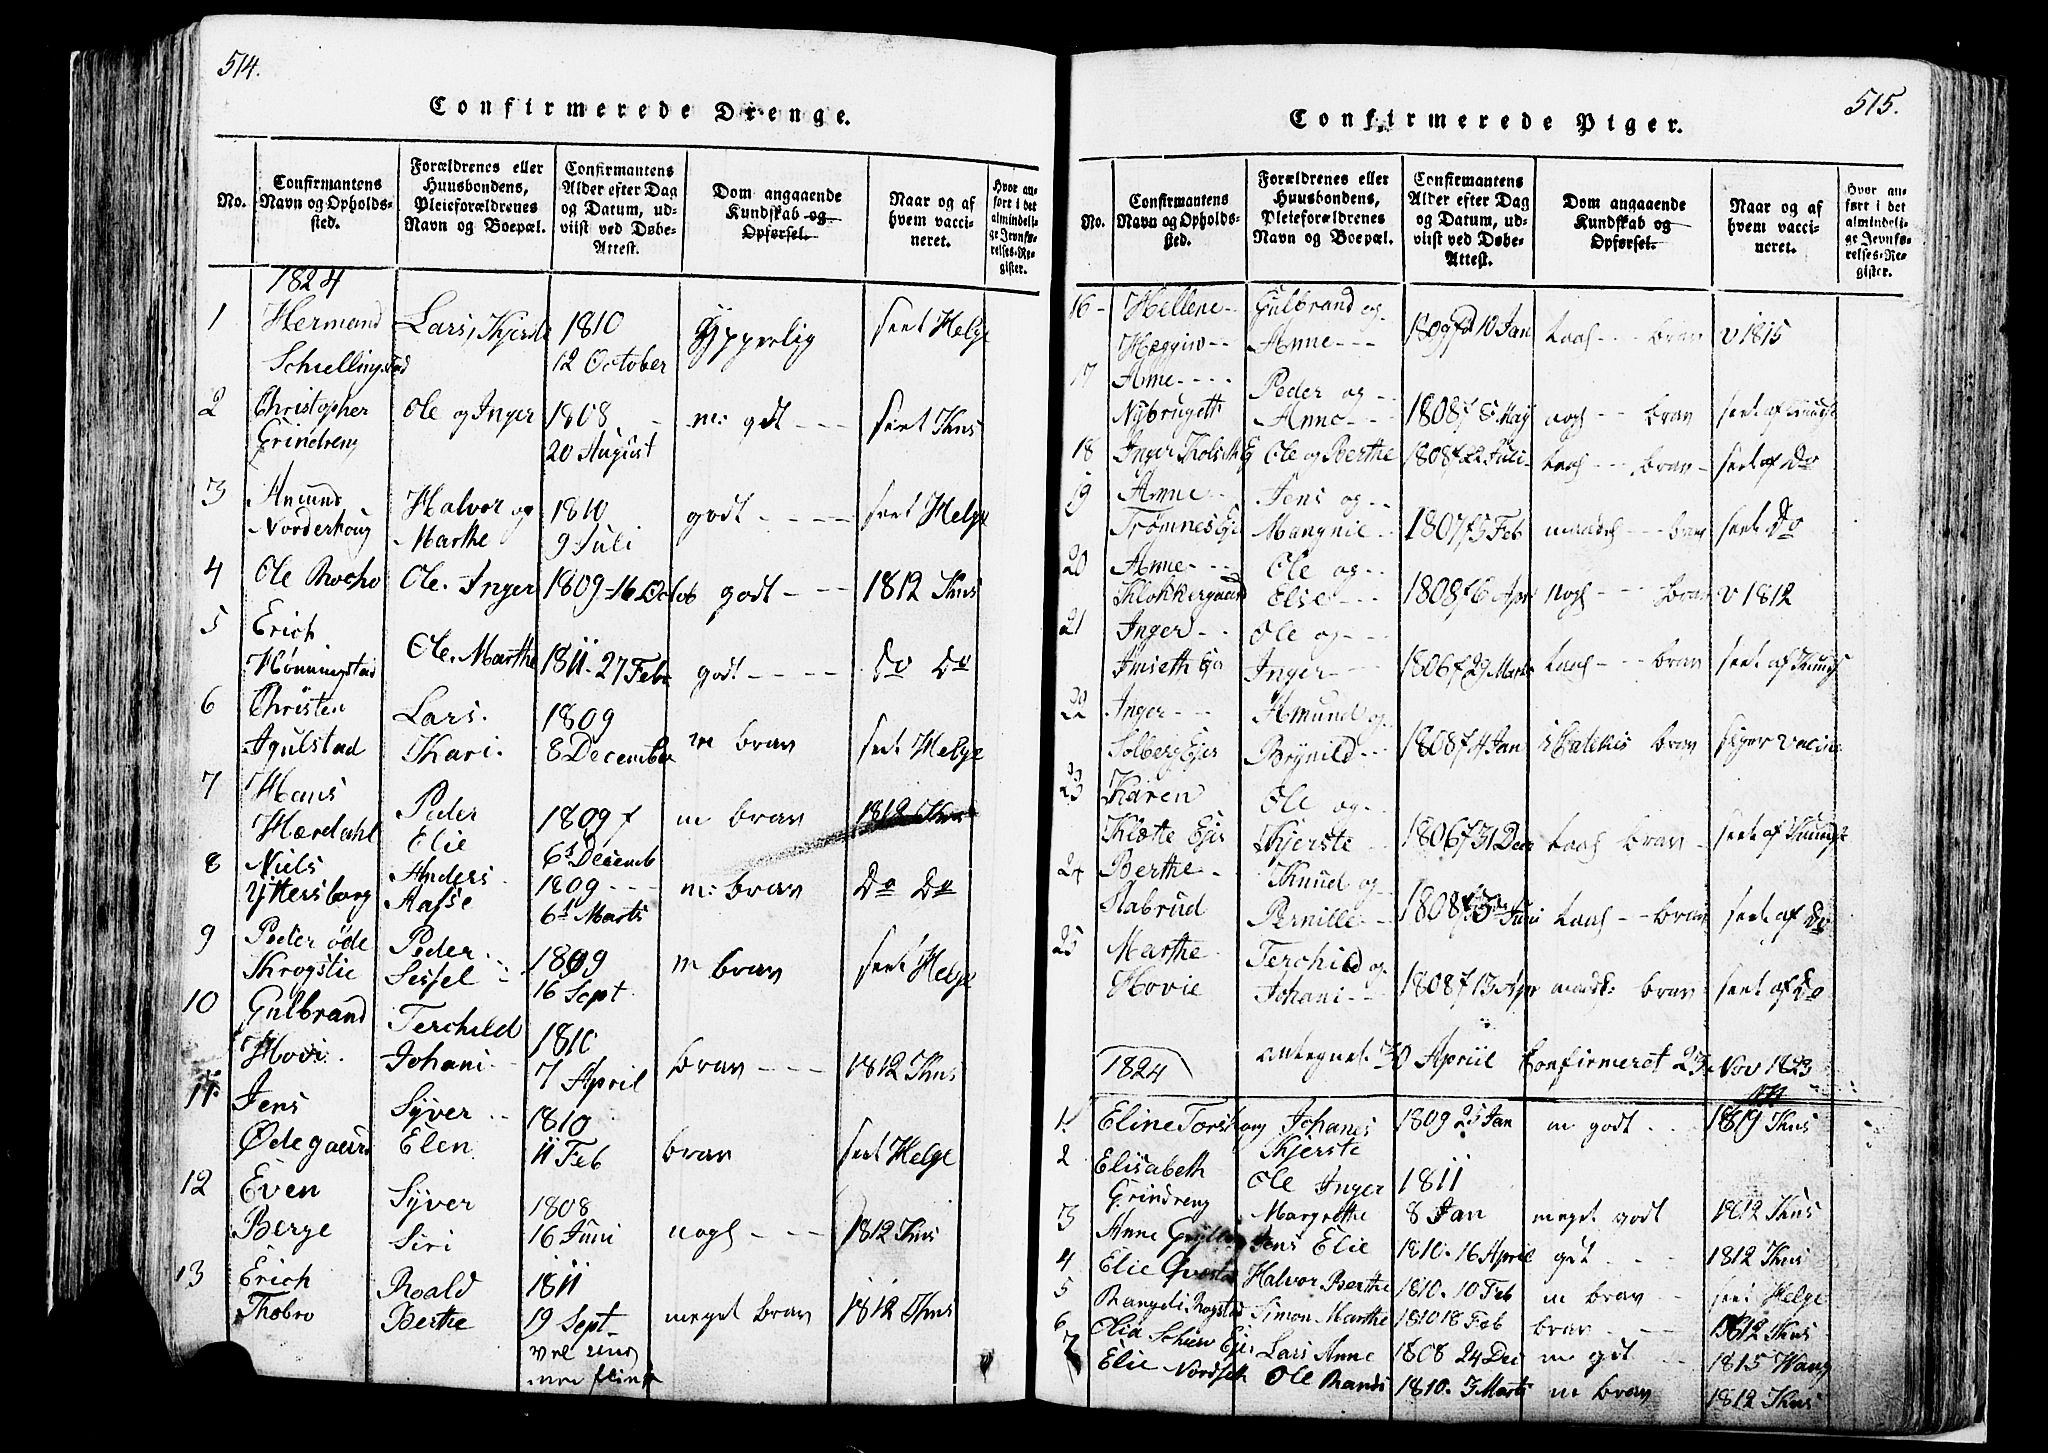 514.
Confirmerede Drenge.
No. | Confirmantens Navn og Opholdssted. | Forældrenes eller Huusbondens, Pleieforældrenes Navn og Boepæl. | Confirmantens Alder efter Dag og Datum, udviist ved Døbe-Attest. | Dom angaaende Kundskab og Opførsel. | Naar og af hvem vaccineret. | Hvor anført i det almindelige Jevnførelses-Register.
1824
1 Hermand Lars, Kjersti 1810 Ypperlig seet Helge
Schiellingstad 12 October
2 Christopher Ole og Inger 1808 m: gdt seet Thus
Grindreng 20 August
3 Amund Halvor og 1810 godt seet Helge
Norderhoug Marthe 9 Juli
4 Ole Ole. Inger 1809-16 Octob godt 1812 Thus
5 Erich Ole. Marthe 1811. 27 Febr godt Do Do
Hønningstad
6 Christen Lars. 1809 m brav seet Helge
Igulstad Kari. 8 December
7 Hans Peder 1809 f m brav 1812 Thus
Hærdahl Elie 6 Decemb
8 Niels Anders 1809 m: brav Do Do
Yttersborg Aasse 6 Marts
9 Peder øde Peder 1809 m brav seet Helge
Krogstie Sessel 16 Sept
10 Gulbrand Terchild 1810 brav 1812 Thus
Hovi. Johani 7 April
11. Jens Syver 1810 brav seet Helge
Ødegaard Elen 11 Feb
12 Even Syver 1808 nogl 1812 Thus
Berge Siri 16 Juni
13 Erich Roald 1811 meget brav 1812 Thus
Thobro Berthe 19 Sept
515.
Confirmerede Piger.
No. | Confirmantens Navn og Opholdssted. | Forældrenes eller Huusbondens, Pleieforældrenes Navn og Boepæl. | Confirmantens Alder efter Dag og Datum, udviist ved Døbe-Attest. | Dom angaaende Kundskab og Opførsel. | Naar og af hvem vaccineret. | Hvor anført i det almindelige Jevnførelses-Register.
16 Hellene Gulbrand og 1809 10 Jan brav v 1815
Anne
17 Anne Peder og 1808 f 8 May brav seet af
Anne
18 Inger Ole og Berthe 1808 f 22 Juli brav seet af Do
19 Anne Jens og 1807 f 5 Feb brav seet Do
Trømnes Eje
20 Anne Ole og 1808 f 6 Apr brav v 1812
Klokkergaard Else
21 Inger Ole og 1806 f 29 Marts brav seet af
Inger
22 Inger Amund og 1808 f 4 Jan brav
Solberg Ejer Brynild
23 Karen Ole og 1806 f 31 Dec brav seet af
Kjerste
24 Berthe Knud og 1808 Juni brav seet af Do
Rabrud Pernille
25 Marthe Terchild og 1808 f 13 Apr brav seet af Do
Hovie Johani
1824 Apriil Confirmeret 23 Nov 1823
1. Eline Johanes 1809 25 Jan m godt 1819 Thus
Kjerste
2 Elisabeth Ole Inger 1811
Grindreng Margrethe 8 Jan meget godt 1812 Thus
3 Anne Jens Elie 1810. 16 April gdt 1812 Thus
4 Elie Halvor Berthe 1810. 10 Feb m brav seet Helge
5 Rangdi Rogstad Simon Marthe 1810 18 Feb brav 1812 Thus
6 Lars Anne 1808 24 Dec m gdt 1815 Wang
7 Elie Nordseth Ole Randi 1810. 3 Marts m brav 1812 Thus